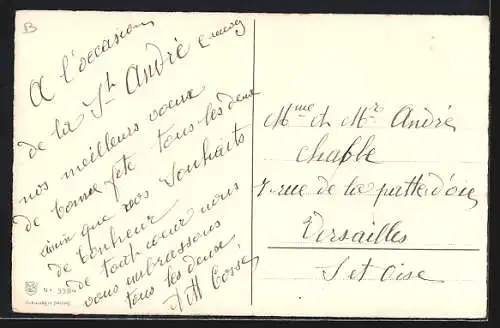 B
A l'occasion
de la St André
nos meilleurs vœux
de bonne fête tous les deux
ainsi que nos souhaits
de bonheur
de tout cœur nous
vous embrassons
tous les deux
Mme et Mr André
Chable
rue de la patte d'oie
Versailles
S et Oise